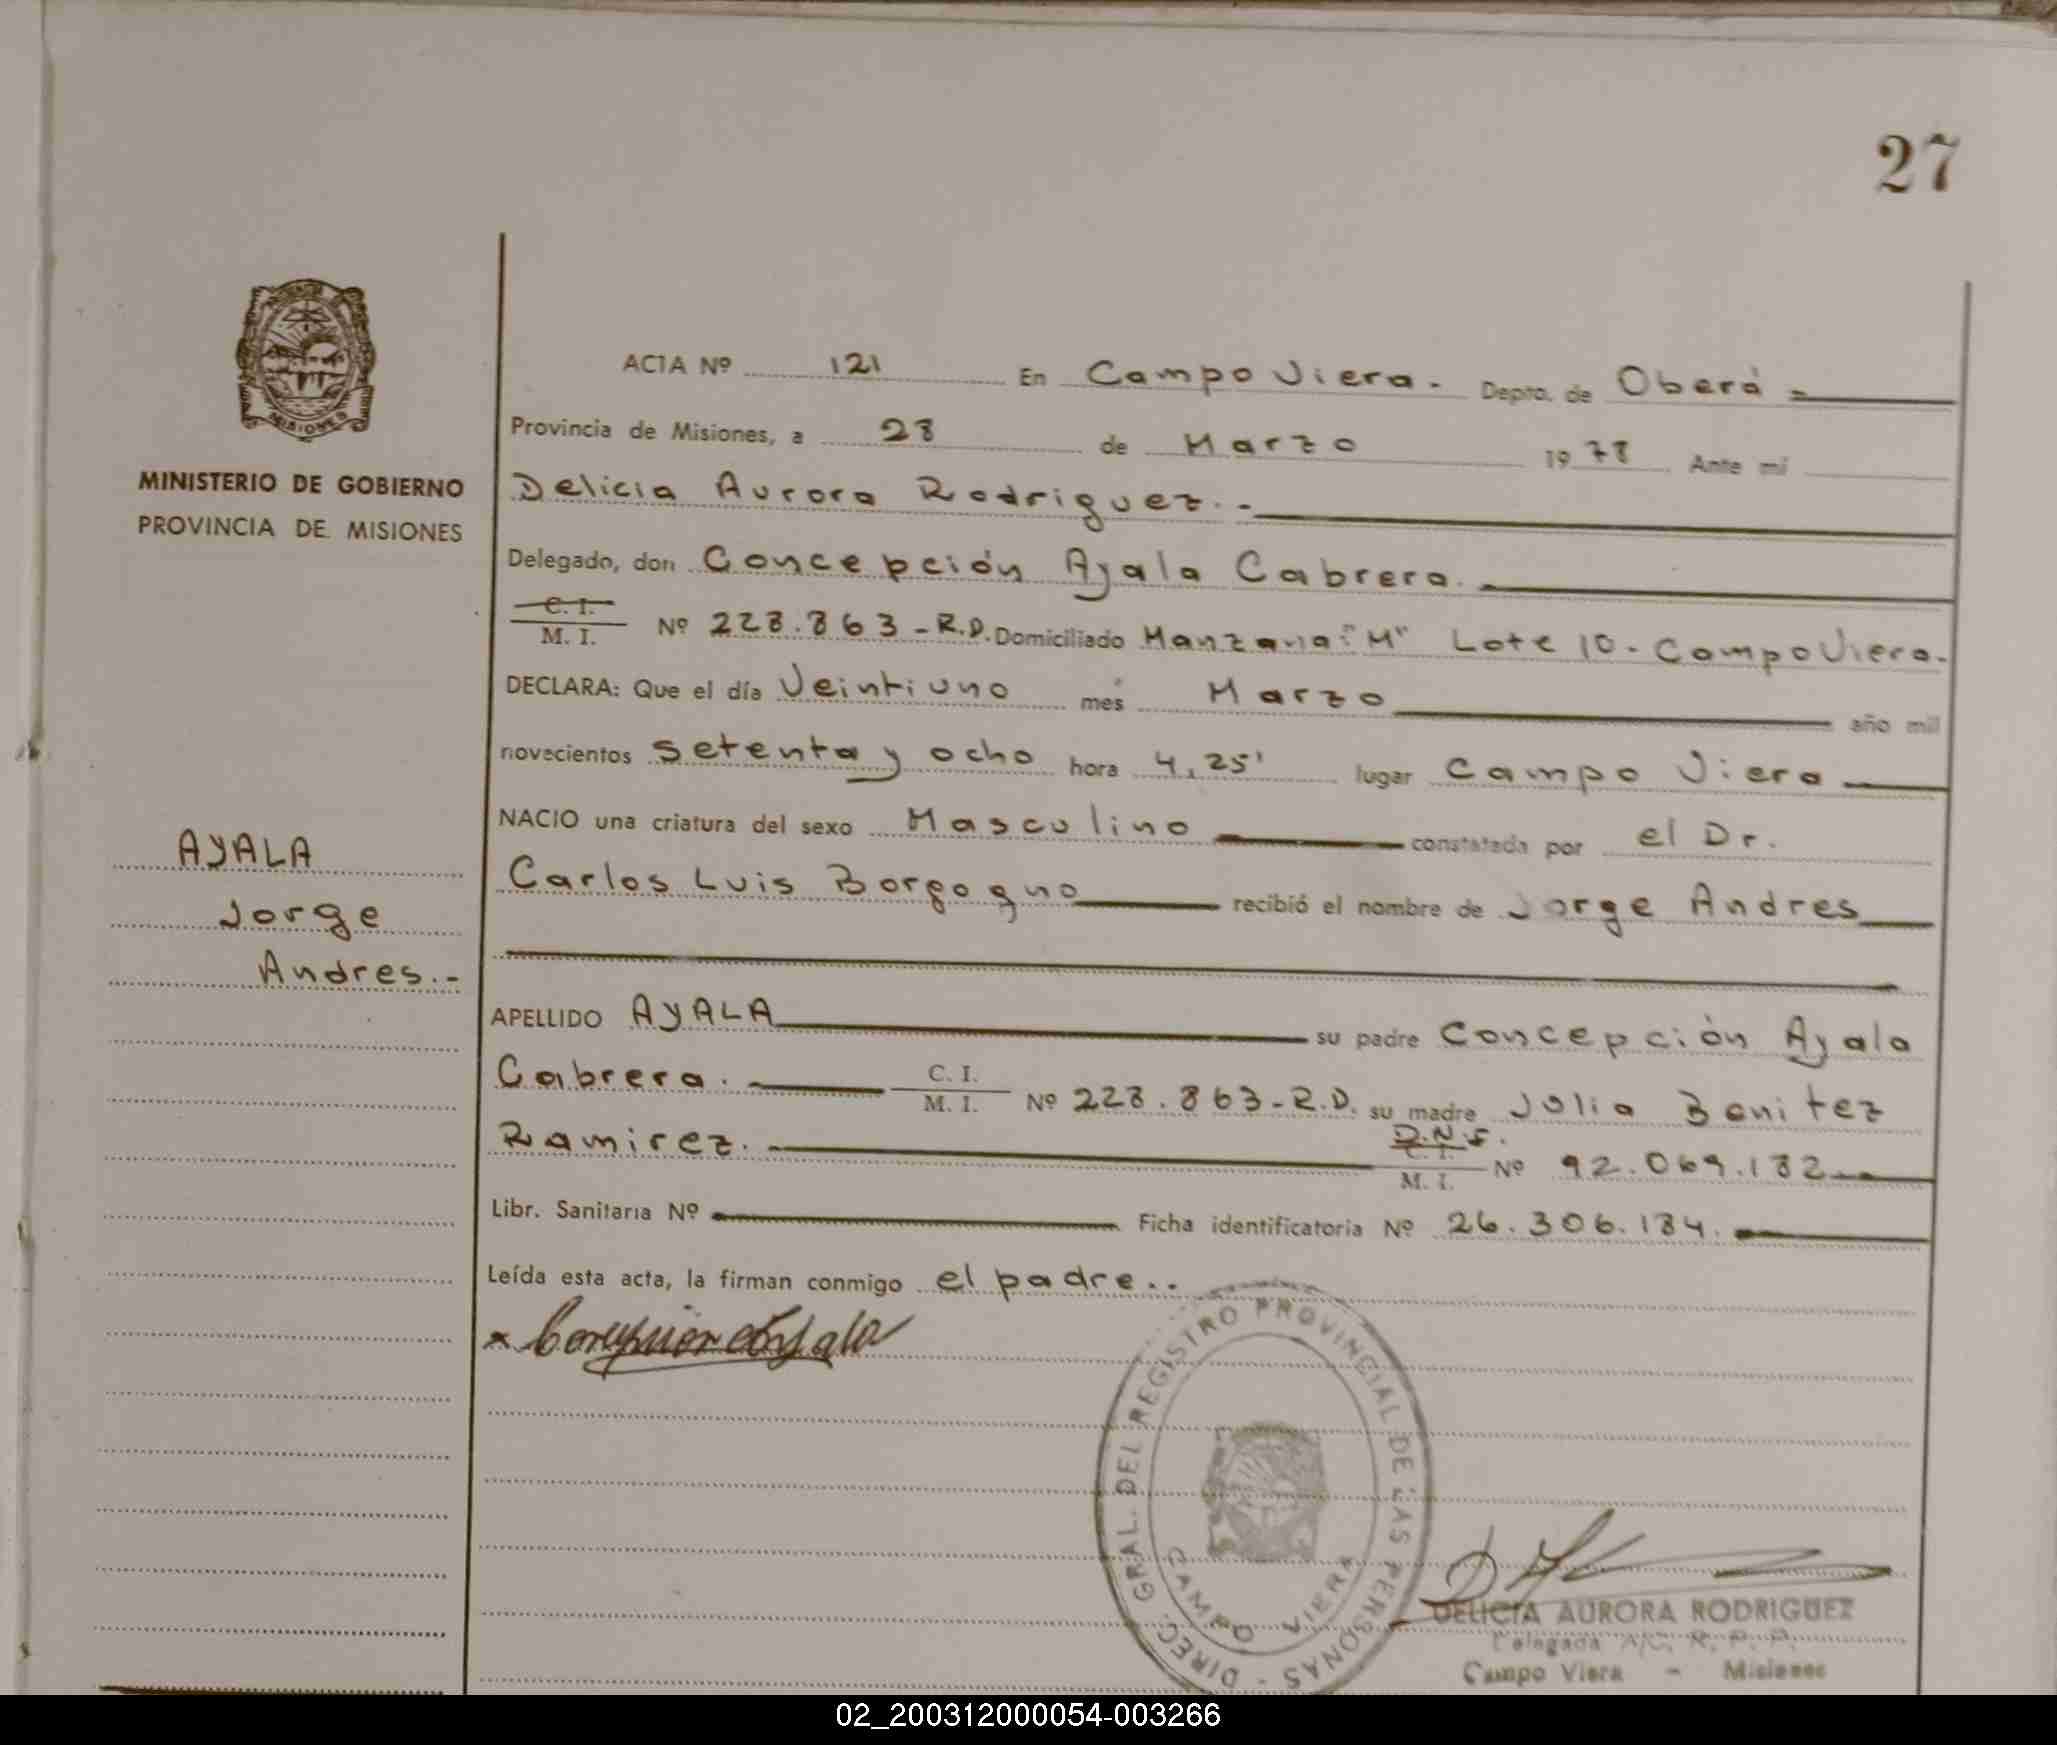 27
ACTA Nº 121 En Campo Viera. Depto. de Oberá
Provincia de Misiones, a 28 de Marzo 1978 Ante mí
MINISTERIO DE GOBIERNO
PROVINCIA DE MISIONES
MISIONES
Delicia Aurora Rodriguez.-
Delegado, don Concepción Ayala Cabrera.
C. I.
M. I. Nº 228.863-R.D. Domiciliado Manzana "M" Lote 10. Campo Viera.
DECLARA: Que el día Veintiuno mes Marzo año mil
novecientos setenta y ocho hora 4,25' lugar Campo Viera
NACIO una criatura del sexo Masculino constatada por el Dr.
Carlos Luis Borgogno recibió el nombre de Jorge Andres
AYALA
Jorge
Andres.-
APELLIDO AYALA su padre Concepción Ayala
Cabrera. C. I. M. I. Nº 228.863-R.D. su madre Julia Benitez
Ramirez. D.N.I. C. I. M. I. Nº 92.069.182
Libr. Sanitaria Nº Ficha identificatoria Nº 26.306.184.
Leída esta acta, la firman conmigo el padre..
Concepcion Ayala
DIREC. GRAL. DEL REGISTRO PROVINCIAL DE LAS PERSONAS -
CAMPO VIERA
DELICIA AURORA RODRIGUEZ
Delegada R. P. P.
Campo Viera - Misiones
02_200312000054-003266